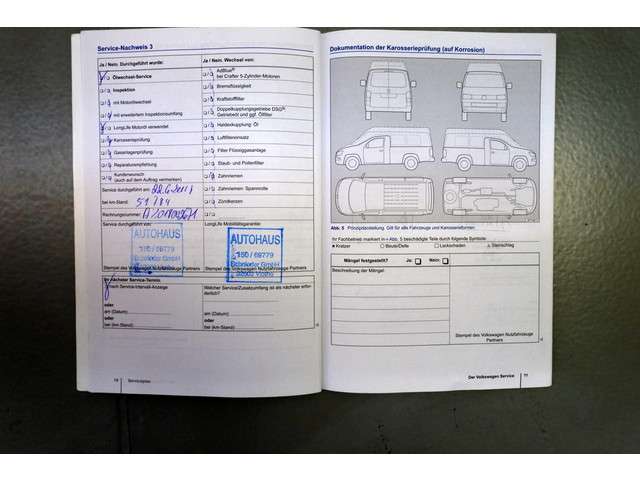 Service-Nachweis 3
Ja / Nein: Durchgeführt wurde:
Ölwechsel-Service
Inspektion
mit Motorölwechsel
mit erweitertem Inspektionsumfang
LongLife Motoröl verwendet
Karosserieprüfung
Gasanlagenprüfung
Reparaturempfehlung
Kundenwunsch
(auch auf dem Auftrag vermerken)
Service durchgeführt am:
bei km-Stand:
Rechnungsnummer:
Ja / Nein: Wechsel von:
AdBlue®
bei Crafter 5-Zylinder-Motoren
Bremsflüssigkeit
Kraftstofffilter
Doppelkupplungsgetriebe DSG®
Getriebeöl und ggf. Ölfilter
Haldexkupplung: Öl
Luftfiltereinsatz
Filter Flüssiggasanlage
Staub- und Pollenfilter
Zahnriemen
Zahnriemen: Spannrolle
Zündkerzen
Service durchgeführt von:
AUTOHAUS
150 / 69779
Stempel des Volkswagen Nutzfahrzeuge Partners
LongLife Mobilitätsgarantie:
AUTOHAUS
150 / 69779
Stempel des Volkswagen Nutzfahrzeuge Partners
Ihr nächster Service-Termin:
nach Service-Intervall-Anzeige
oder
am (Datum):
oder
bei (km-Stand):
Welcher Service/Zusatzumfang ist als nächster erforderlich?
am (Datum):
oder
bei (km-Stand):
Serviceplan
Dokumentation der Karosserieprüfung (auf Korrosion)
Abb. 5 Prinzipdarstellung. Gilt für alle Fahrzeuge und Karosserieformen.
Ihr Fachbetrieb markiert in Abb. 5 beschädigte Teile durch folgende Symbole:
Kratzer Beule/Delle Lackschaden Steinschlag
Mängel festgestellt? Ja: Nein:
Beschreibung der Mängel:
Stempel des Volkswagen Nutzfahrzeuge
Partners
Der Volkswagen Service